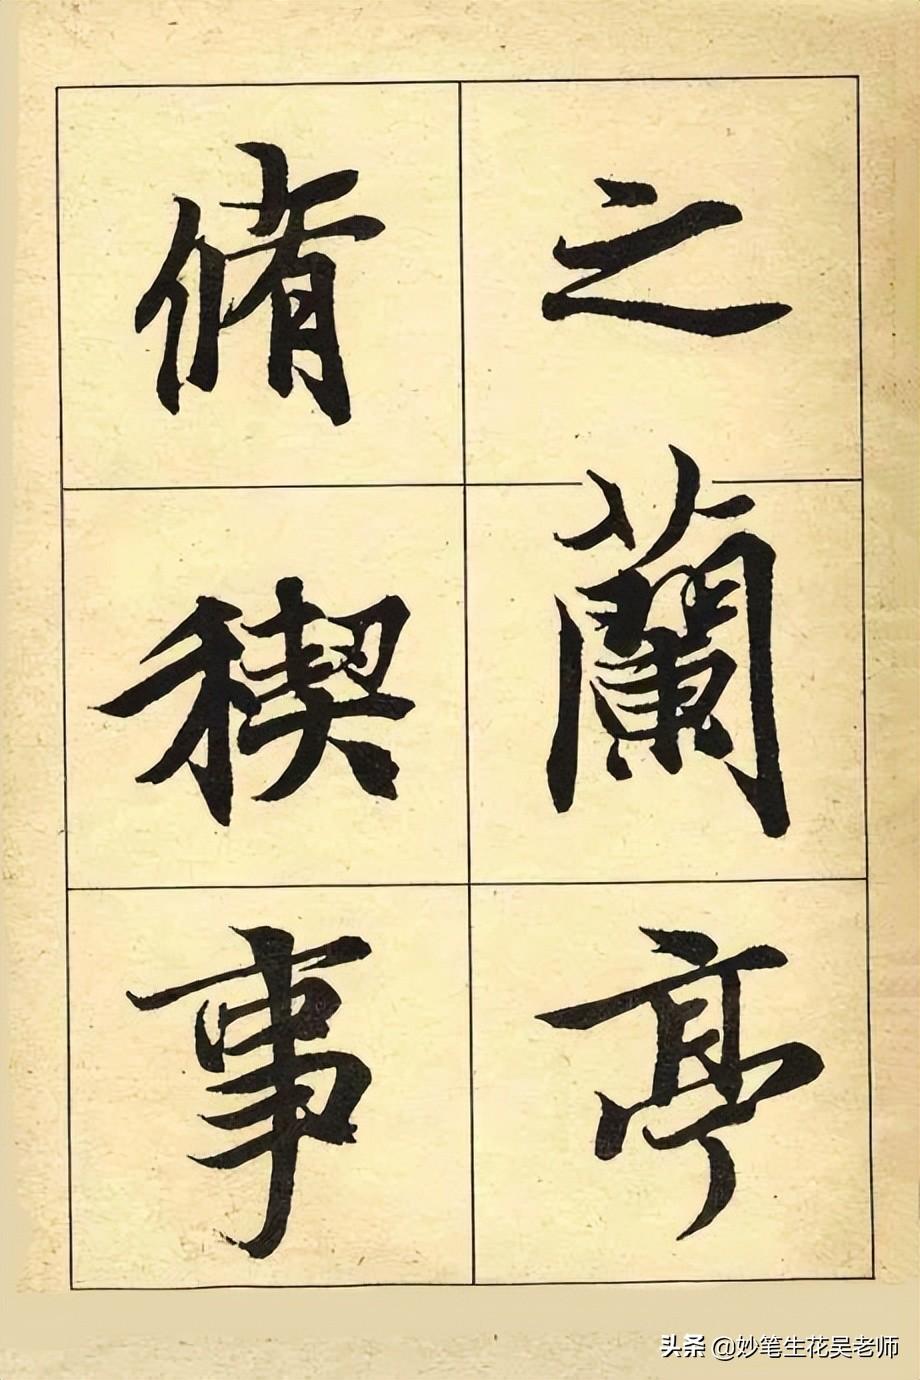 之蘭亭
脩稧事
头条 @妙笔生花吴老师